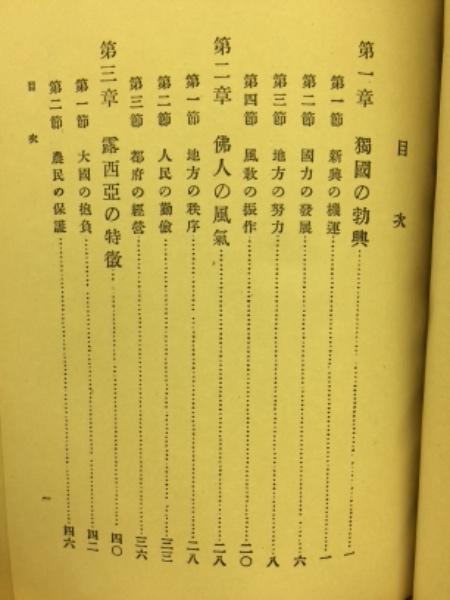 目次
第一章 獨國の勃興……一
第一節 新興の機運……一
第二節 國力の發展……六
第三節 地方の努力……八
第四節 風敎の振作……二〇
第二章 佛人の風氣……二八
第一節 地方の秩序……二八
第二節 人民の勤儉……三三
第三節 都府の經營……三六
第三章 露西亞の特徵……四〇
第一節 大國の抱負……四二
第二節 農民の保護……四六
目次
一